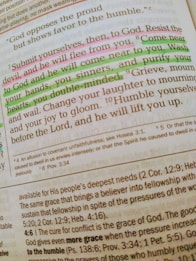 "God opposes the proud
but shows favor to the humble."
Submit yourselves, then, to God. Resist the
devil, and he will flee from you. Come near
to God and he will come near to you. Wash
your hands, you sinners, and purify your
hearts, you double-minded. Grieve, mourn
and wail. Change your laughter to mourning
and your joy to gloom. Humble yourselves
before the Lord, and he will lift you up.
Prov. 3:34
available for His people's deepest needs (2 Cor. 12:9; Heb.
The same grace that brings a believer into fellowship with
sustain that fellowship in spite of the pressures of the
5:20; 2 Cor. 12:9; Heb. 4:16).
4:6 The cure for conflict is the grace of God. The good
God gives even more grace when the pressure increases
to the humble (Ps. 138:6; Prov. 3:34; 1 Pet. 5:5). God
the prayers of those who humbly